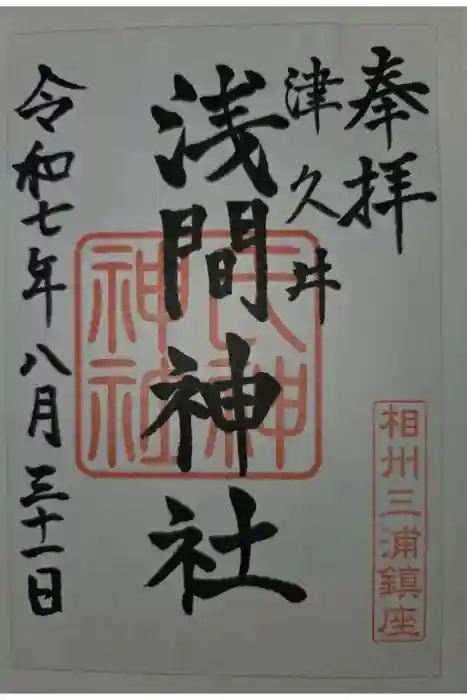 奉拝
津久井
浅間神社
令和七年八月三十一日
氏神
神社
相州三浦鎮座